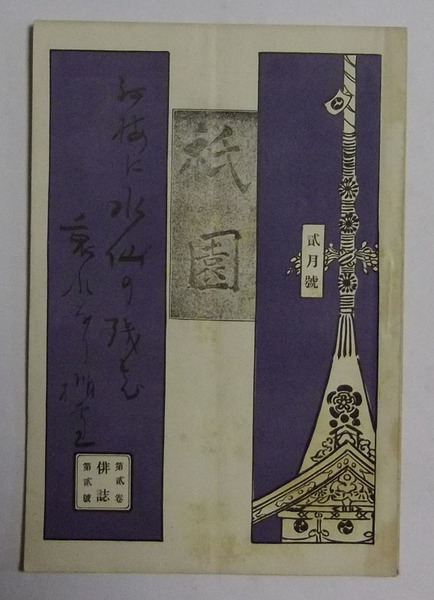 貳月號
祇園
紅梅に水仙の残花
第貳卷
俳誌
第貳號